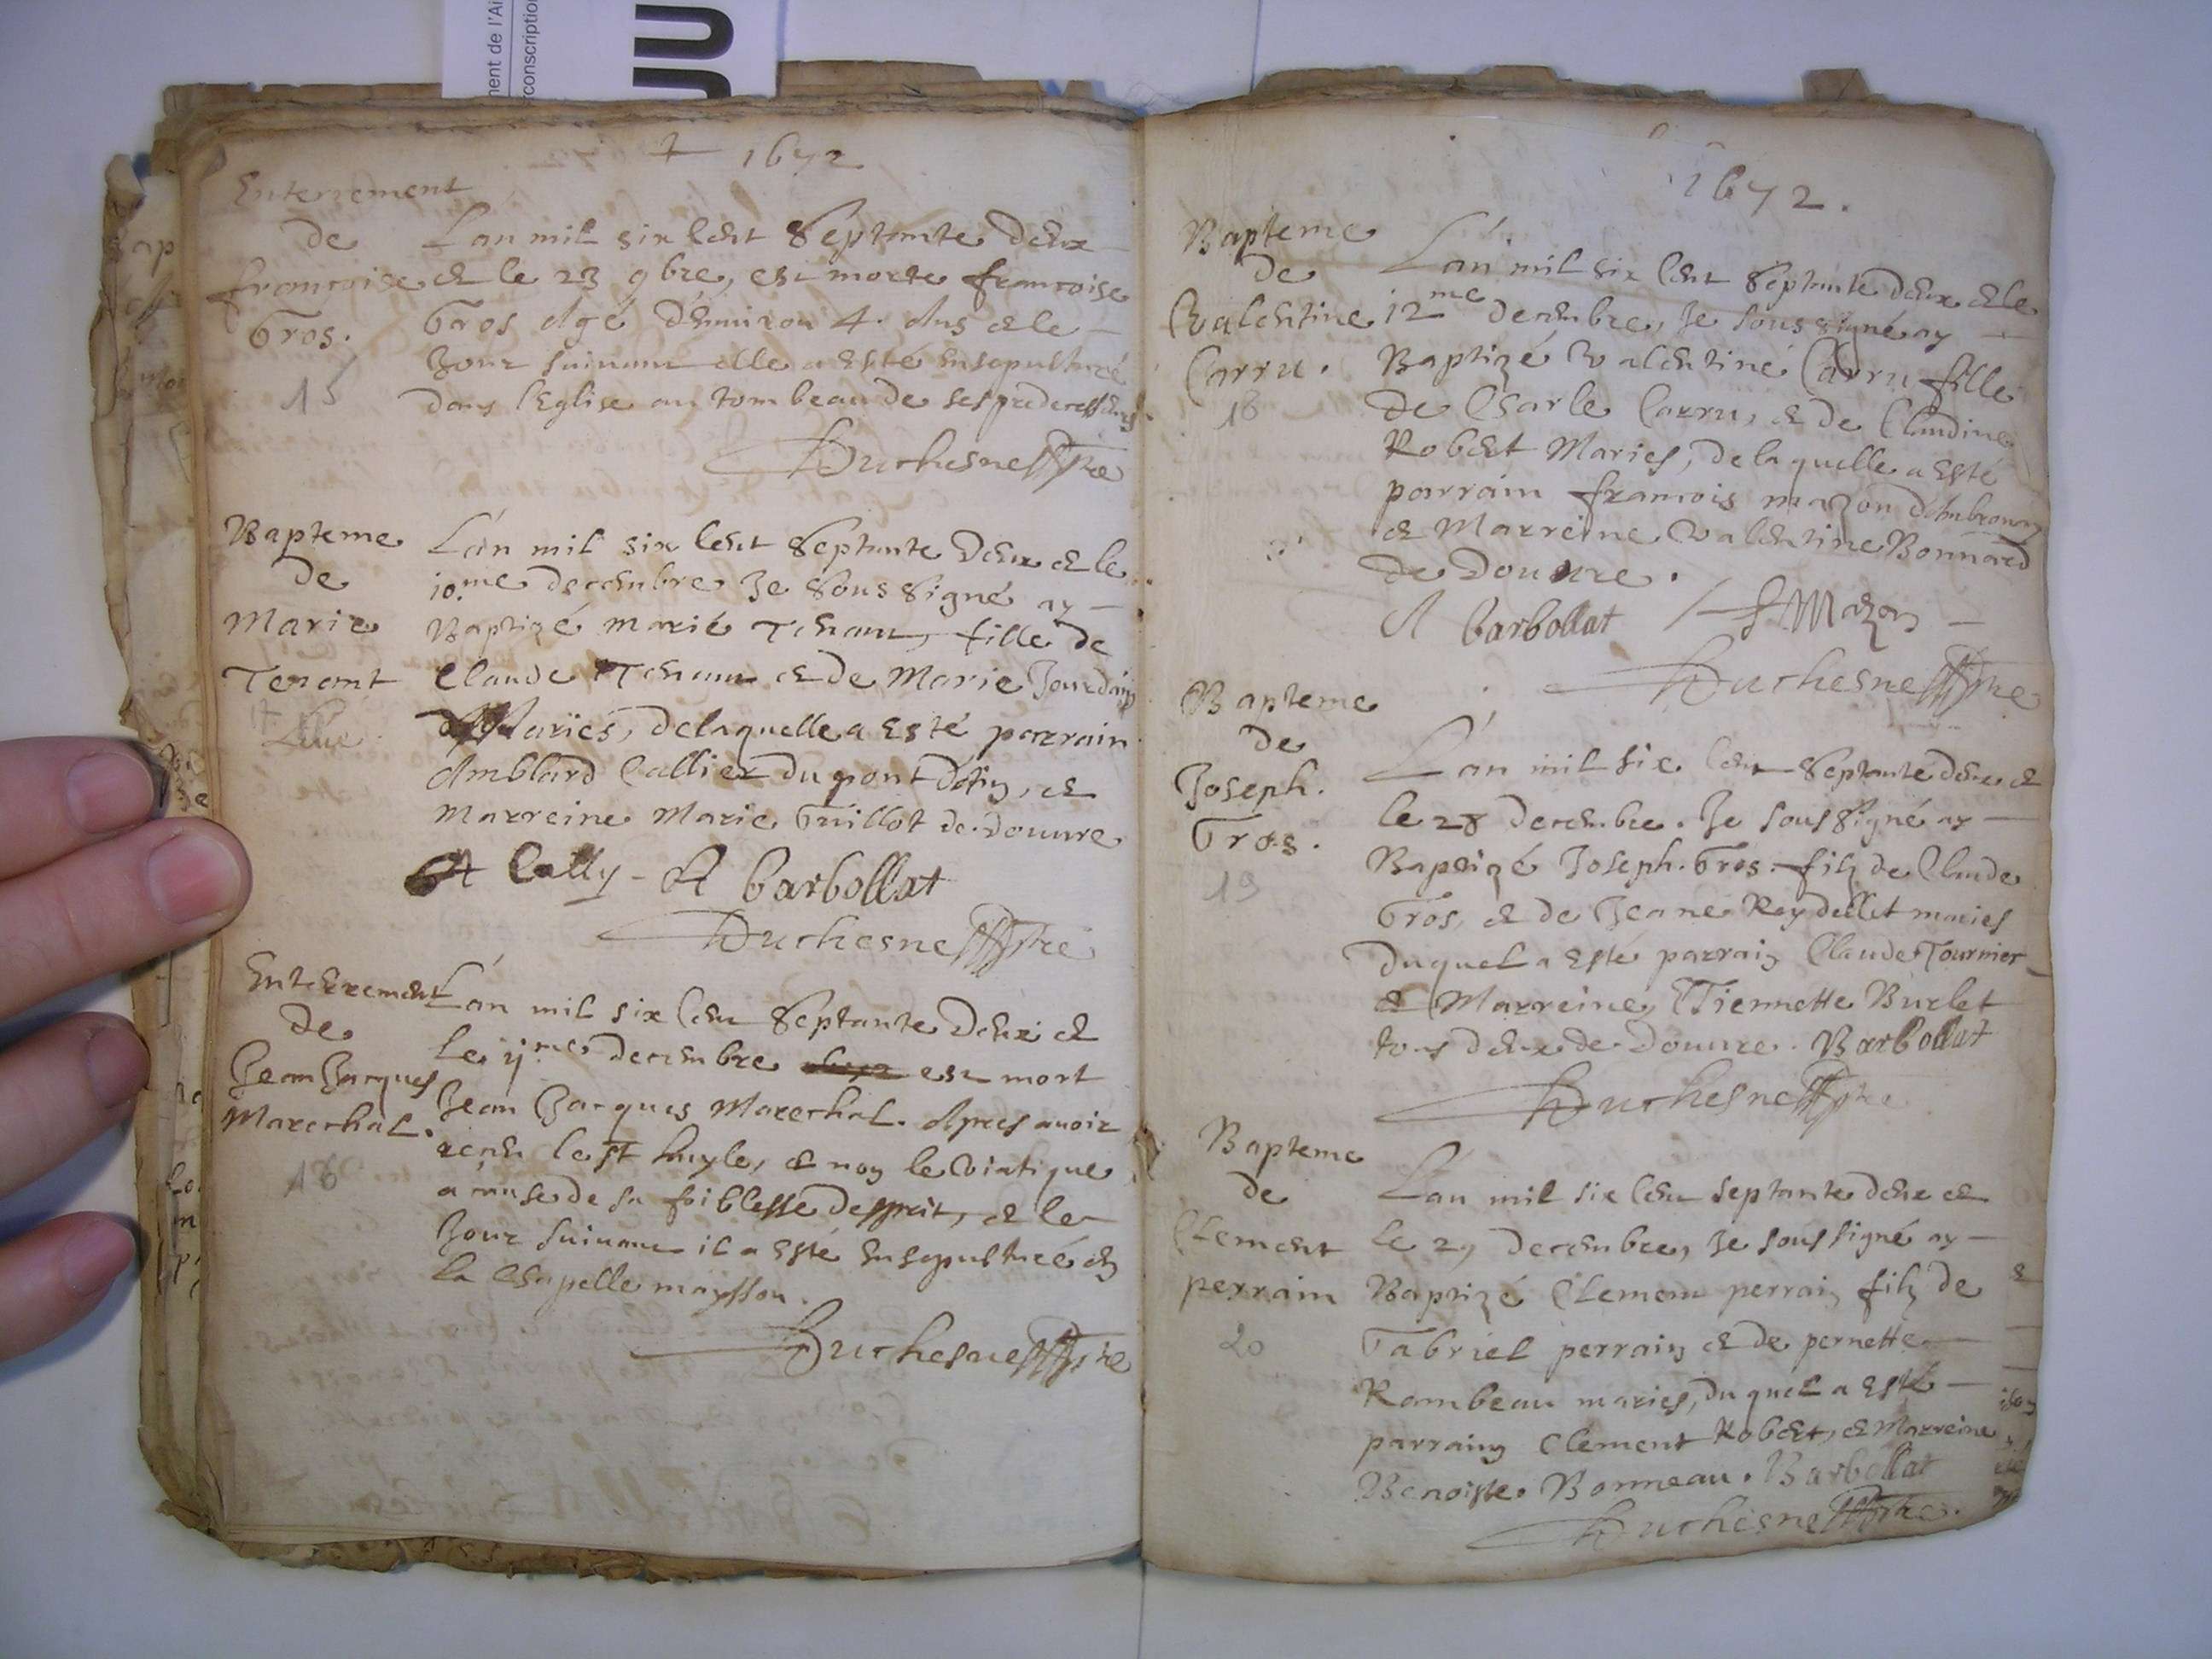 ent de l'Ai
rconscription
1672
Enterrement
de
francoise
Gros.
15
L'an mil six Cent Septante deux
et le 23 9bre, est morte francoise
Gros Agé d'environ 4. Ans et le
Jour suivant elle a esté ensepulturé
dans l'Eglise au tombeau de ses predecesseurs
Duchesne Ptre
Bapteme
de
Marie
Tenant
17
L'án mil six Cent Septante deux et le
10.me decembre Je Soussigné ay
Baptizé Marie Tenant, fille de
Claude Tenant et de Marie Jourdain
Mariés, de laquelle a esté parrain
Amblard Callier du pont d'Ain, et
Marreine Marie Guillot de douvre
A Cally - A Barbollat
Duchesne Ptre
Enterrement
de
Jean Jacques
Marechal.
16
L'án mil six Cent Septante deux et
le 11.me decembre est mort
Jean Jacques Marechal. Apres avoir
receu le St huyle, et non le Viatique
a cause de sa foiblesse d'esprit, et le
Jour suivant il a esté ensepulturé en
la Chapelle maysson.
Duchesne Ptre
1672.
Bapteme
de
Valentine
Carru.
18
L'án mil six Cent Septante deux et le
12me decembre, Je soussigné ay
Baptizé Valentine Carru fille
de Charle Carru, et de Claudine
Robert Mariés, de laquelle a esté
parrain francois mazon d'Ambronay
et Marreine Valentine Bonnard
de Douvre.
A Barbollat f Mazon
Duchesne Ptre
Bapteme
de
Joseph.
Gros.
19
L'án mil six Cent Septante deux et
le 28 decembre. Je soussigné ay
Baptizé Joseph. Gros. filz de Claude
Gros, et de Jeane Reydellet mariés
duquel a esté parrain Claude Tournier
et Marreine, Etiennette Burlet
tous deux de Douvre. Barbollat
Duchesne Ptre
Bapteme
de
Clement
perrain
20
L'an mil six Cent septante deux et
le 29 decembre, Je soussigné ay
Baptizé Clement perrain filz de
Gabriel perrain et de pernette
Rambeau mariés, duquel a esté
parrain Clement Robert, et Marreine
Benoiste Bonneau. Barbollat
Duchesne Ptre.